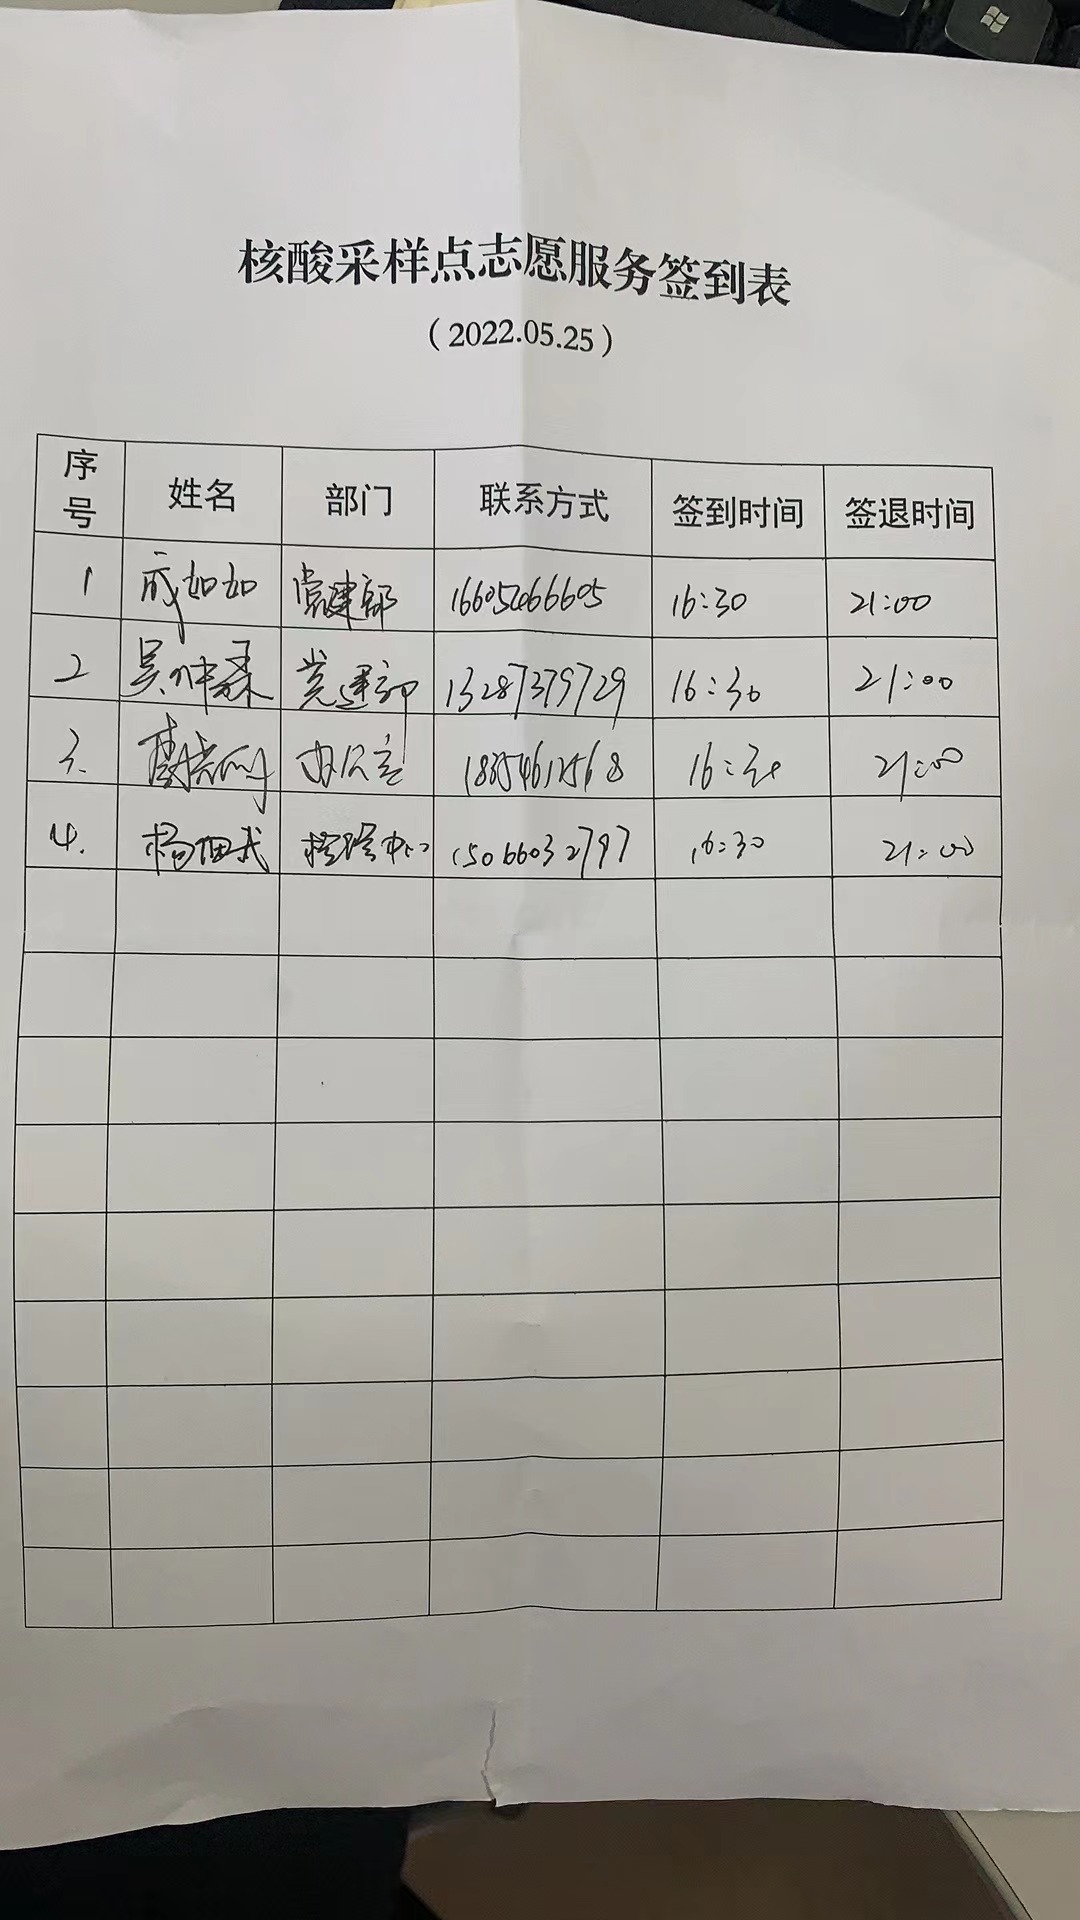 核酸采样点志愿服务签到表
（2022.05.25）
序号 姓名 部门 联系方式 签到时间 签退时间
1 成如如 党建部 16605466605 16:30 21:00
2 吴仲 党建部 13287379729 16:30 21:00
3. 办公室 18354612568 16:30 21:00
4. 杨 检验中心 15066032797 16:30 21:00